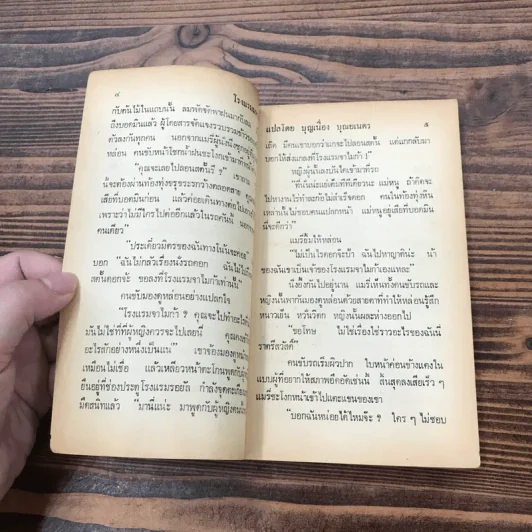 ๔
โรงแรม
กับต้นไม้ในแถบนั้น ลมพัดซัดพาฝนมากริ่ง
ถึงบอดมินแล้ว ผู้โดยสารซัดแจงรวบรวมข้าวของ
ตัวลงกันทุกคน นอกจากแมรี่ผู้นั่งนิ่ง
หล่อน คนขับหน้าโชกน้ำฝนชะโงกเข้ามาที่
"คุณจะเลยไปลอนสตันรึ ?" เขาถาม
น้ำจะต้องผ่านท้องทุ่งขรุขระกว้างตลอดสาย
เสียที่บอดมินก่อน แล้วค่อยเดินทางต่อไป
เพราะว่าไม่มีใครไปต่ออีกแล้วในรถคันนี้ นอก
คนเดียว"
"ประเดี๋ยวมิตรของฉันทางโน้นจะคอย"
บอก "ฉันไม่กลัวเรื่องนั่งรถดอก ฉันไม่ไป
สตันดอกจ้ะ ขอลงที่โรงแรมจาไมก้าเท่านั้น"
คนขับมองดูหล่อนอย่างแปลกใจ
"โรงแรมจาไมก้า ? คุณจะไปทำอะไร
มันไม่ใช่ที่ที่ผู้หญิงควรจะไปเลยนี่ คุณคง
อะไรสักอย่างหนึ่งเป็นแน่" เขาจ้องมองดู
เหมือนไม่เชื่อ แล้วเหลียวหน้าตะโกนพูดกับ
ยืนอยู่ที่ช่องประตูโรงแรมรอยัล กำลังจุดตะเกียง
มืดสนิทแล้ว "มานี่แน่ะ มาพูดกับผู้หญิงคนนี้
แปลโดย บุญเนื่อง บุณยเนตร
๕
เถิด มีคนเขาบอกว่าแกจะไปลอนสตัน แต่แกกลับมา
บอกให้ส่งแกลงที่โรงแรมจาไมก้า !"
หญิงผู้นั้นลงบันไดเข้ามาที่รถ
"ที่นั่นน่ะแย่เต็มทีทีเดียวนะ แม่หนู ถ้าคิดจะ
ไปหางานไร่ทำละก้อไม่สำเร็จดอก คนในท้องทุ่งหิน
เหล่านั้นไม่ชอบคนแปลกหน้า แม่หนูอยู่เสียที่บอดมิน
นี่จะดีกว่า"
แมรี่ยิ้มให้หล่อน
"ไม่เป็นไรดอกจ้ะป้า ฉันไปหาญาตินะ น้า
ของฉันเขาเป็นเจ้าของโรงแรมจาไมก้าเองแหละ"
นิ่งอึ้งกันไปอยู่นาน แมรี่เห็นทั้งคนขับรถและ
หญิงนั้นพากันมองดูหล่อนด้วยสายตาที่ทำให้หล่อนรู้สึก
หนาวเย็น หวั่นวิตก หญิงนั้นผละห่างออกไป
"ขอโทษ ไม่ใช่เรื่องใช่ราวอะไรของฉันนี่
ราตรีสวัสดิ์"
คนขับรถเริ่มผิวปาก ใบหน้าค่อนข้างแดงใน
แบบผู้ที่อยากให้สภาพอึดอัดเช่นนั้น สิ้นสุดลงเสียเร็ว ๆ
แมรี่ชะโงกหน้าเข้าไปแตะแขนของเขา
"บอกฉันหน่อยได้ไหมจ๊ะ ? ใคร ๆ ไม่ชอบ